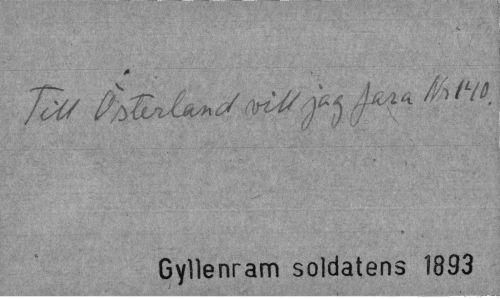 Till Österland vill jag fara Nr 140.
Gyllenram soldatens 1893